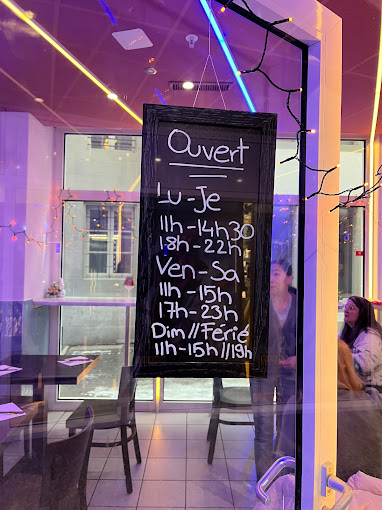 Ouvert
Lu-Je
11h-14h30
18h-22h
Ven-Sa
11h-15h
17h-23h
Dim//Férié
11h-15h//19h